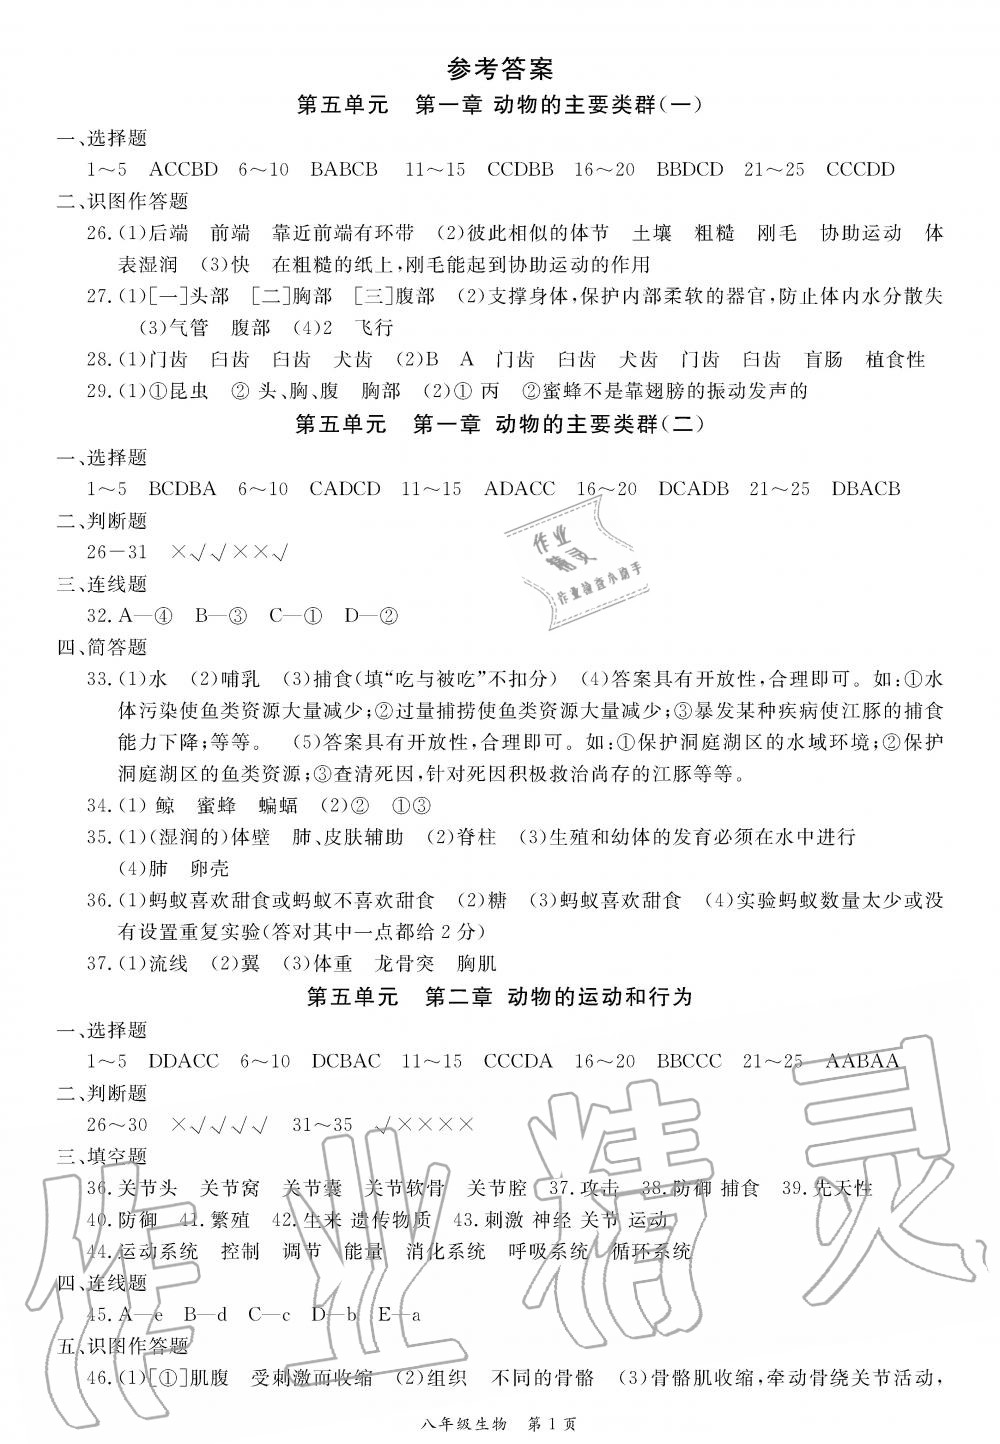 参考答案
第五单元　第一章 动物的主要类群(一)
一、选择题
1～5　ACCBD　6～10　BABCB　11～15　CCDBB　16～20　BBDCD　21～25　CCCDD
二、识图作答题
26.(1)后端　前端　靠近前端有环带　(2)彼此相似的体节　土壤　粗糙　刚毛　协助运动　体
表湿润　(3)快　在粗糙的纸上,刚毛能起到协助运动的作用
27.(1)[一]头部　[二]胸部　[三]腹部　(2)支撑身体,保护内部柔软的器官,防止体内水分散失
(3)气管　腹部　(4)2　飞行
28.(1)门齿　臼齿　臼齿　犬齿　(2)B　A　门齿　臼齿　犬齿　门齿　臼齿　盲肠　植食性
29.(1)①昆虫　② 头、胸、腹　胸部　(2)① 丙　②蜜蜂不是靠翅膀的振动发声的
第五单元　第一章 动物的主要类群(二)
一、选择题
1～5　BCDBA　6～10　CADCD　11～15　ADACC　16～20　DCADB　21～25　DBACB
二、判断题
26－31　×√√××√
三、连线题
32.A—④　B—③　C—①　D—②
四、简答题
33.(1)水　(2)哺乳　(3)捕食(填“吃与被吃”不扣分)　(4)答案具有开放性,合理即可。如:①水
体污染使鱼类资源大量减少;②过量捕捞使鱼类资源大量减少;③暴发某种疾病使江豚的捕食
能力下降;等等。　(5)答案具有开放性,合理即可。如:①保护洞庭湖区的水域环境;②保护
洞庭湖区的鱼类资源;③查清死因,针对死因积极救治尚存的江豚等等。
34.(1) 鲸　蜜蜂　蝙蝠　(2)②　①③
35.(1)(湿润的)体壁　肺、皮肤辅助　(2)脊柱　(3)生殖和幼体的发育必须在水中进行
(4)肺　卵壳
36.(1)蚂蚁喜欢甜食或蚂蚁不喜欢甜食　(2)糖　(3)蚂蚁喜欢甜食　(4)实验蚂蚁数量太少或没
有设置重复实验(答对其中一点都给2分)
37.(1)流线　(2)翼　(3)体重　龙骨突　胸肌
第五单元　第二章 动物的运动和行为
一、选择题
1～5　DDACC　6～10　DCBAC　11～15　CCCDA　16～20　BBCCC　21～25　AABAA
二、判断题
26～30　×√√√√　31～35　√××××
三、填空题
36.关节头　关节窝　关节囊　关节软骨　关节腔　37.攻击　38.防御 捕食　39.先天性
40.防御　41.繁殖　42.生来 遗传物质　43.刺激 神经 关节 运动
44.运动系统　控制　调节　能量　消化系统　呼吸系统　循环系统
四、连线题
45.A—e　B—d　C—c　D—b　E—a
五、识图作答题
46.(1)[①]肌腹　受刺激而收缩　(2)组织　不同的骨骼　(3)骨骼肌收缩,牵动骨绕关节活动,
八年级生物　第1页
作业
精灵
作业检查小助手
作业精灵